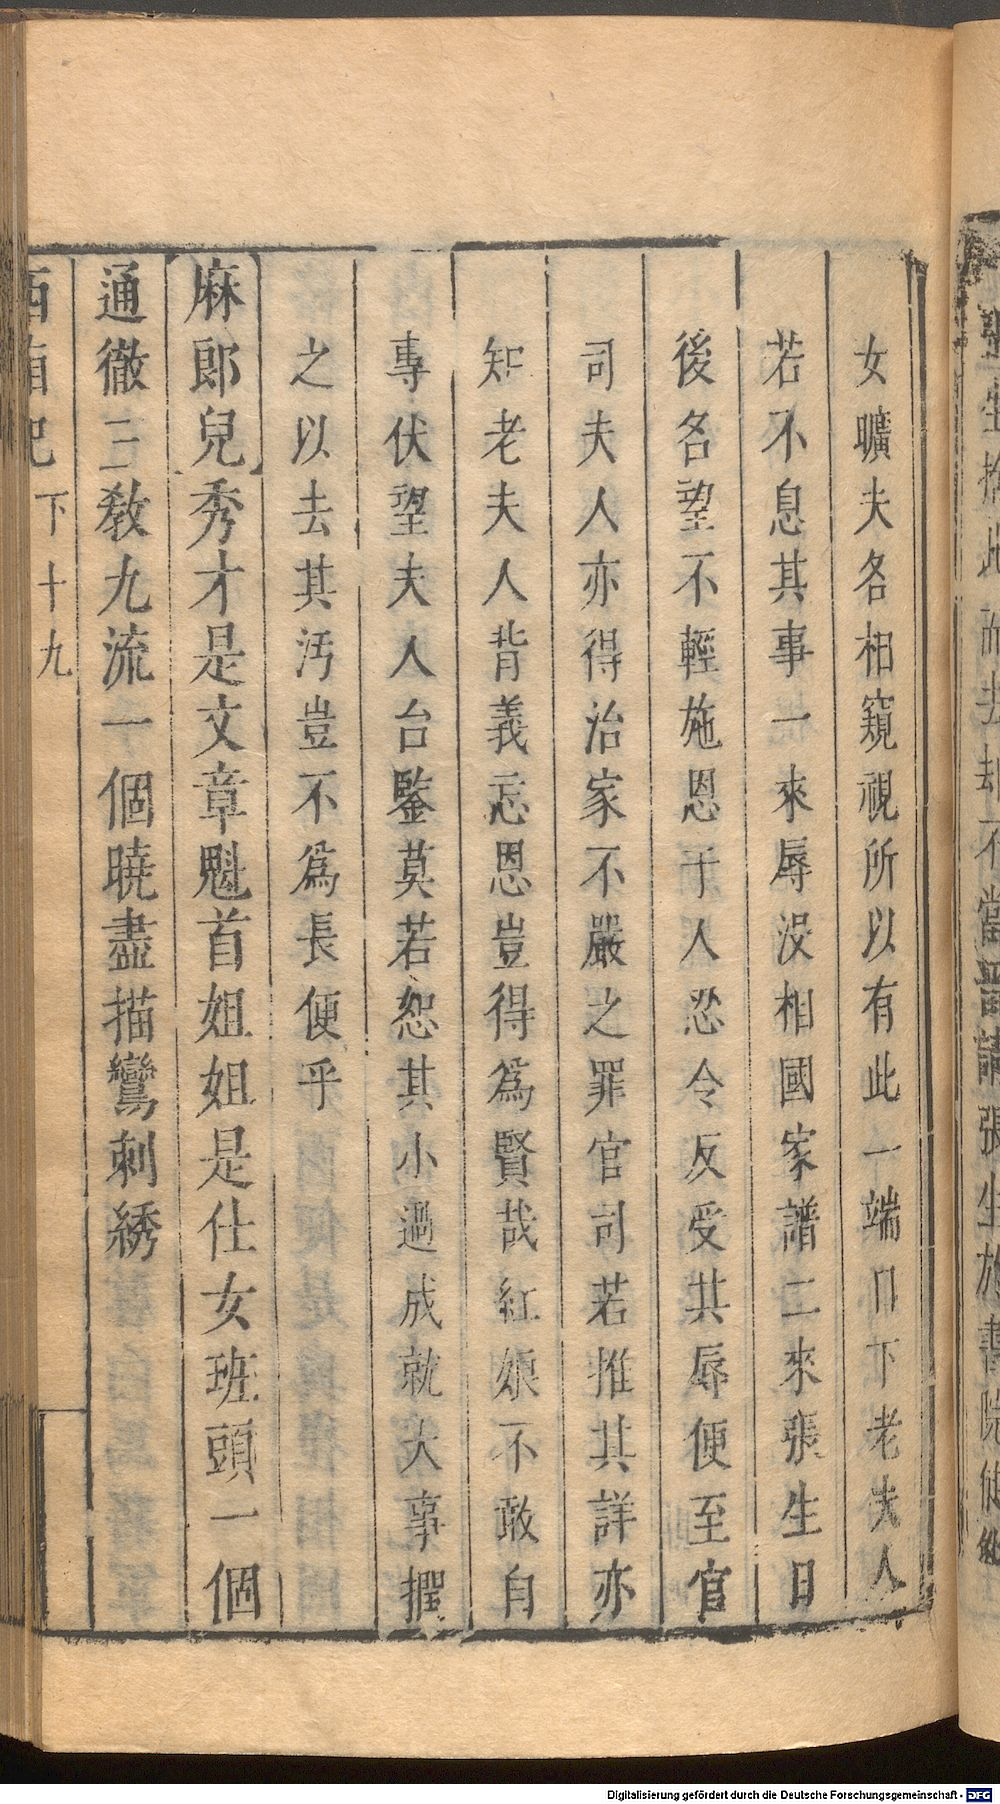 女曠夫各相窺視所以有此一端目下老夫人
若不息其事一來辱沒相國家譜二來張生日
後名望不輕施恩于人忍令反受其辱便至官
司夫人亦得治家不嚴之罪官司若推其詳亦
知老夫人背義忘恩豈得為賢哉紅娘不敢自
專伏望夫人台鑒莫若恕其小過成就大事撋
之以去其汚豈不為長便乎
麻郎兒秀才是文章魁首姐姐是仕女班頭一個
通徹三教九流一個曉盡描鸞刺綉
西廂記 下十九
Digitalisierung gefördert durch die Deutsche Forschungsgemeinschaft - DFG